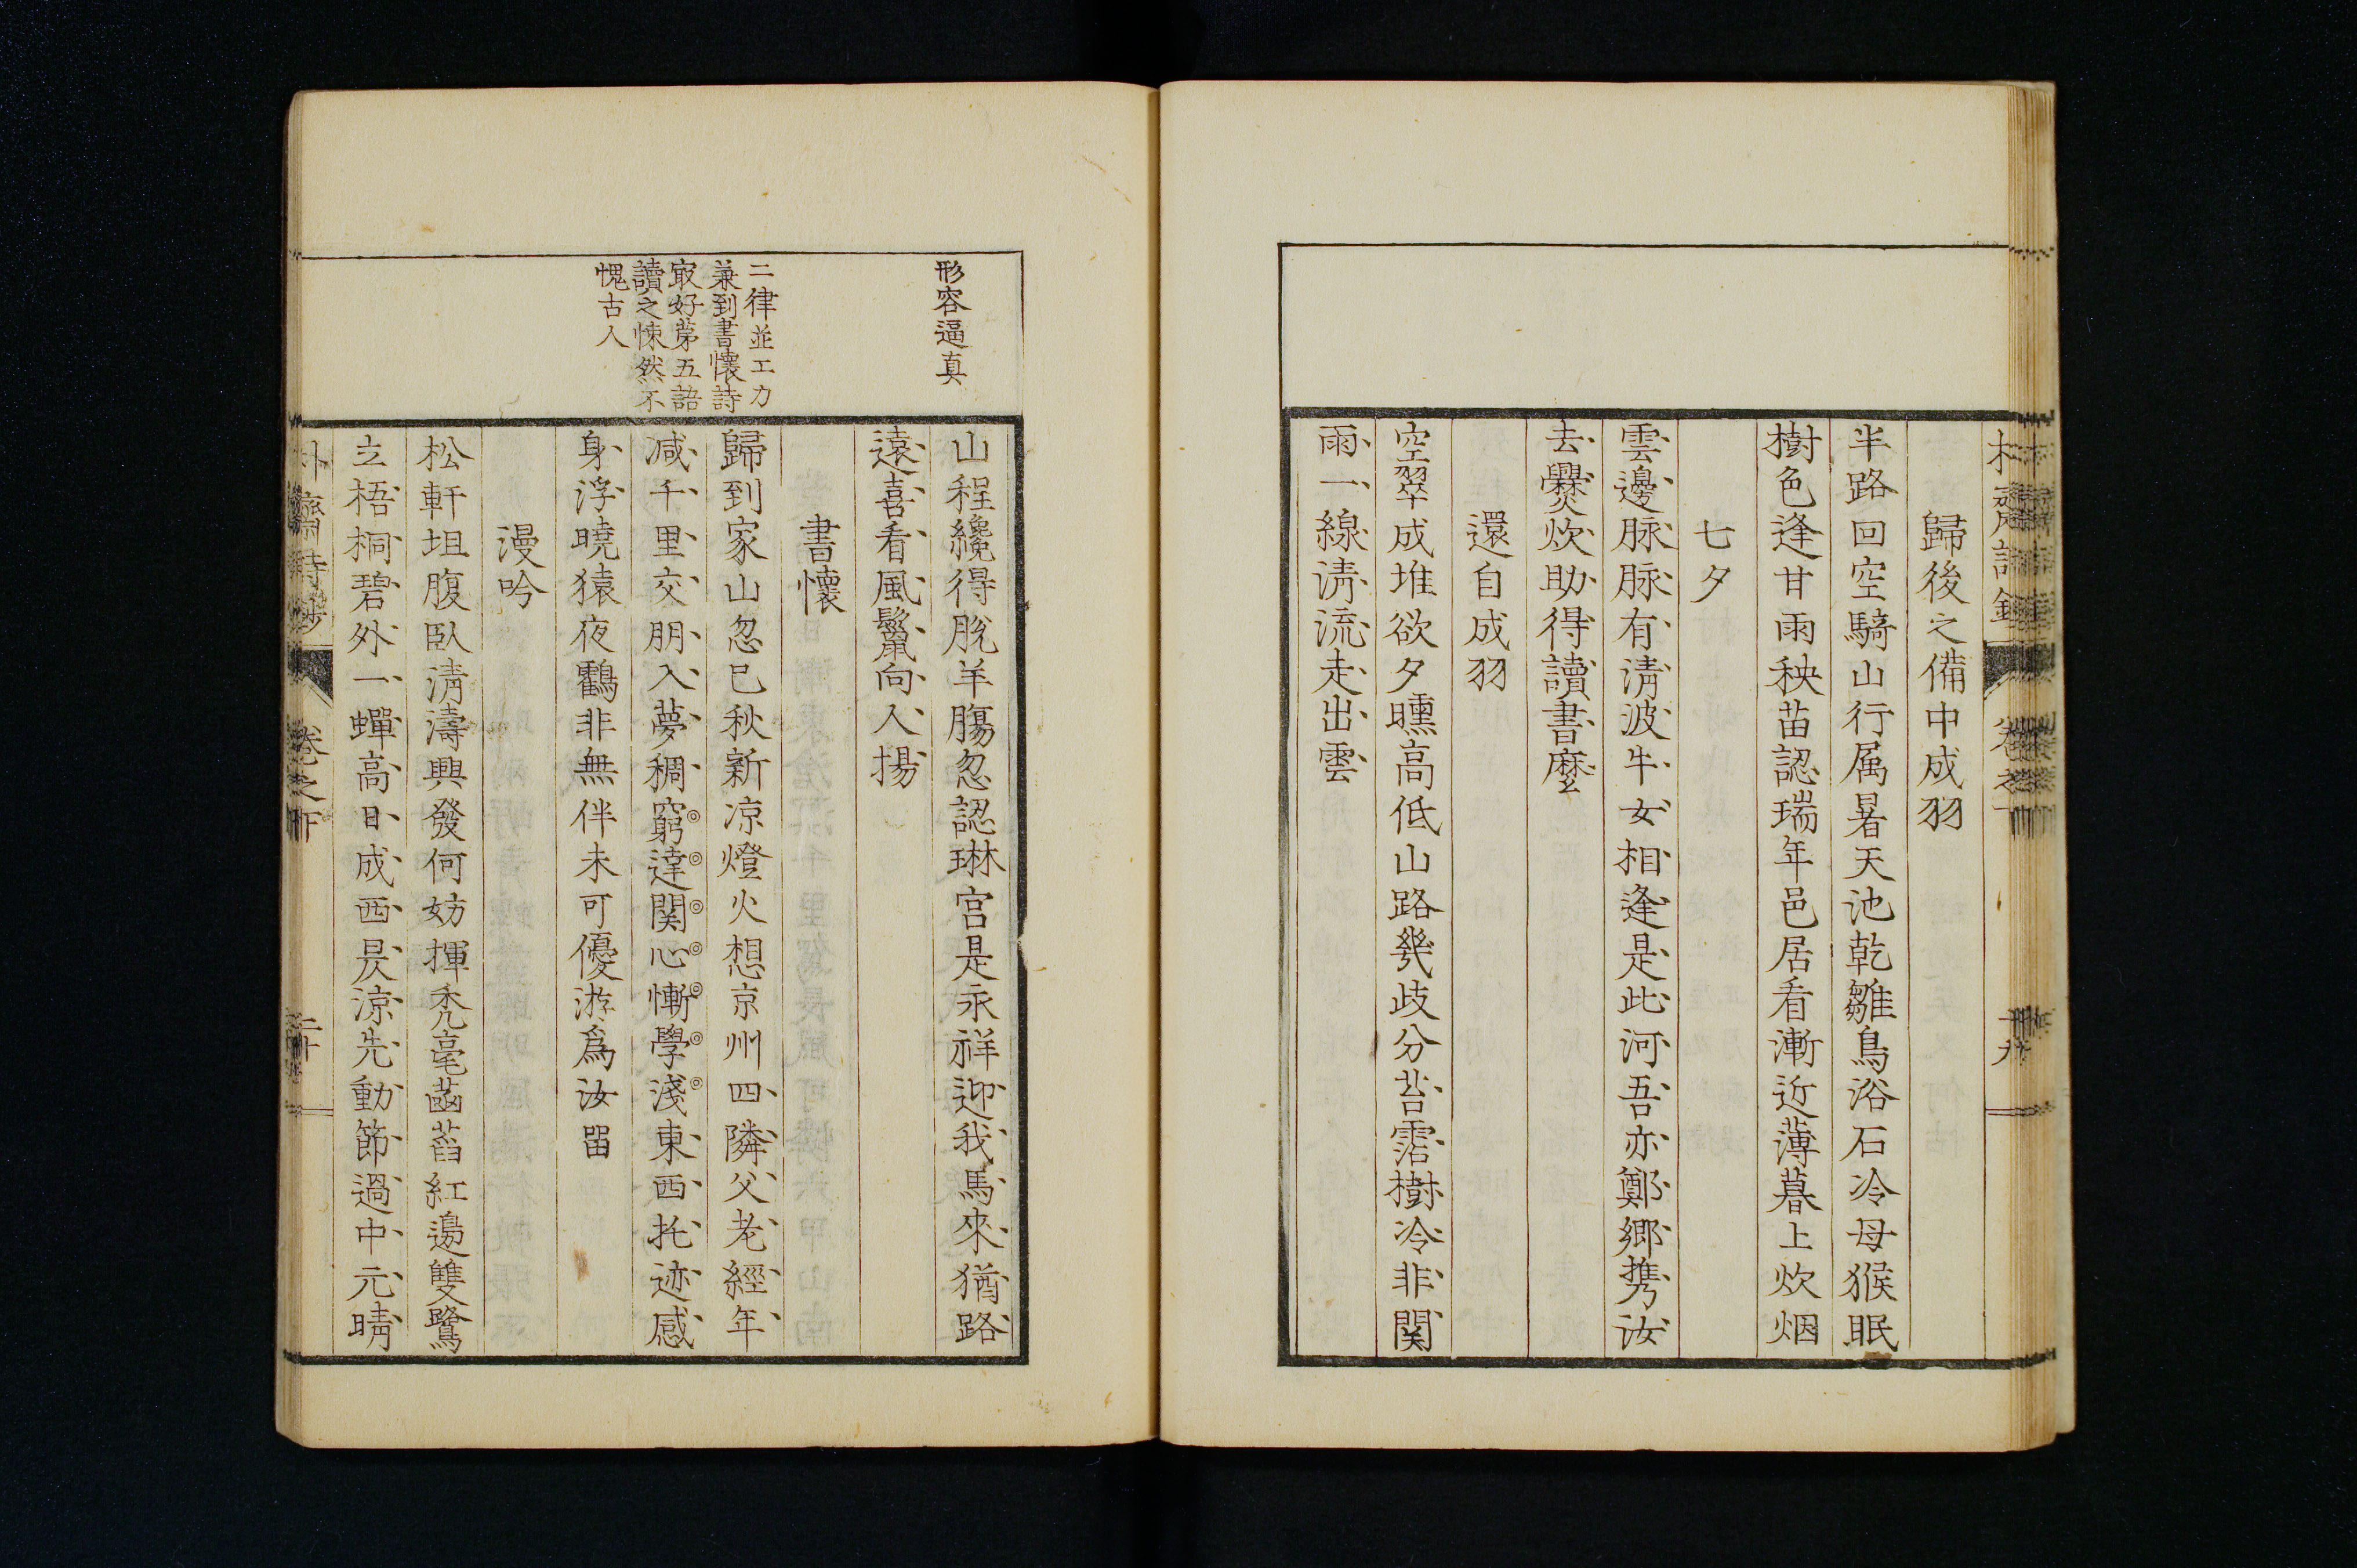 歸後之備中成羽
半路回空騎山行属暑天池乾雛鳥浴石冷母猴眠
樹色逢甘雨秧苗認瑞年邑居看漸近薄暮上炊烟
七夕
雲邊脉脉有淸波牛女相逢是此河吾亦鄭郷携汝
去爨炊助得讀書麼
還自成羽
空翠成堆欲夕曛高低山路幾歧分苔霑樹冷非関
雨一線淸流走出雲
形容逼真
山程纔得脫羊膓忽認琳宫是永祥迎我馬來猶路
遠喜看風鬣向人揚
二律並工力
兼到書懷詩
㝡好苐五語
讀之悚然不
愧古人
書懷
歸到家山忽已秋新凉燈火想京州四隣父老經年
减千里交朋入夢稠窮達関心慚學淺東西托迹感
身浮曉猿夜鸖非無伴未可優游爲汝畱
漫吟
松軒坦腹臥淸濤興發何妨揮禿毫菡萏紅邉雙鷺
立梧桐碧外一蟬高日成西昃凉先動節過中元晴
齋詩鈔 卷之下 二十